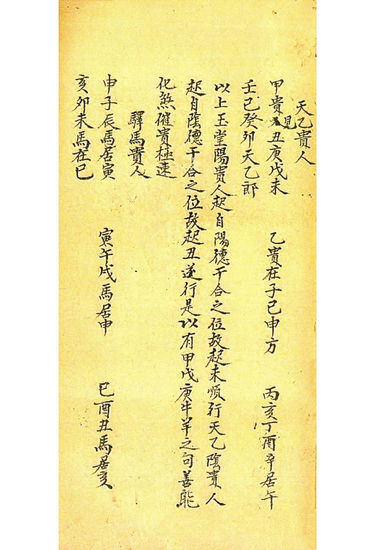 天乙貴人
甲貴見丑庚戊未 乙貴在子己申方 丙亥丁酉辛居午
壬巳癸卯天乙郎
以上玉堂陽貴人起自陽德干合之位故起未順行天乙陰貴人
起自陰德干合之位故起丑遂行是以有甲戊庚牛羊之句善能
化煞催貴極速
驛馬貴人
申子辰馬居寅 寅午戌馬居申 巳酉丑馬居亥
亥卯未馬在巳